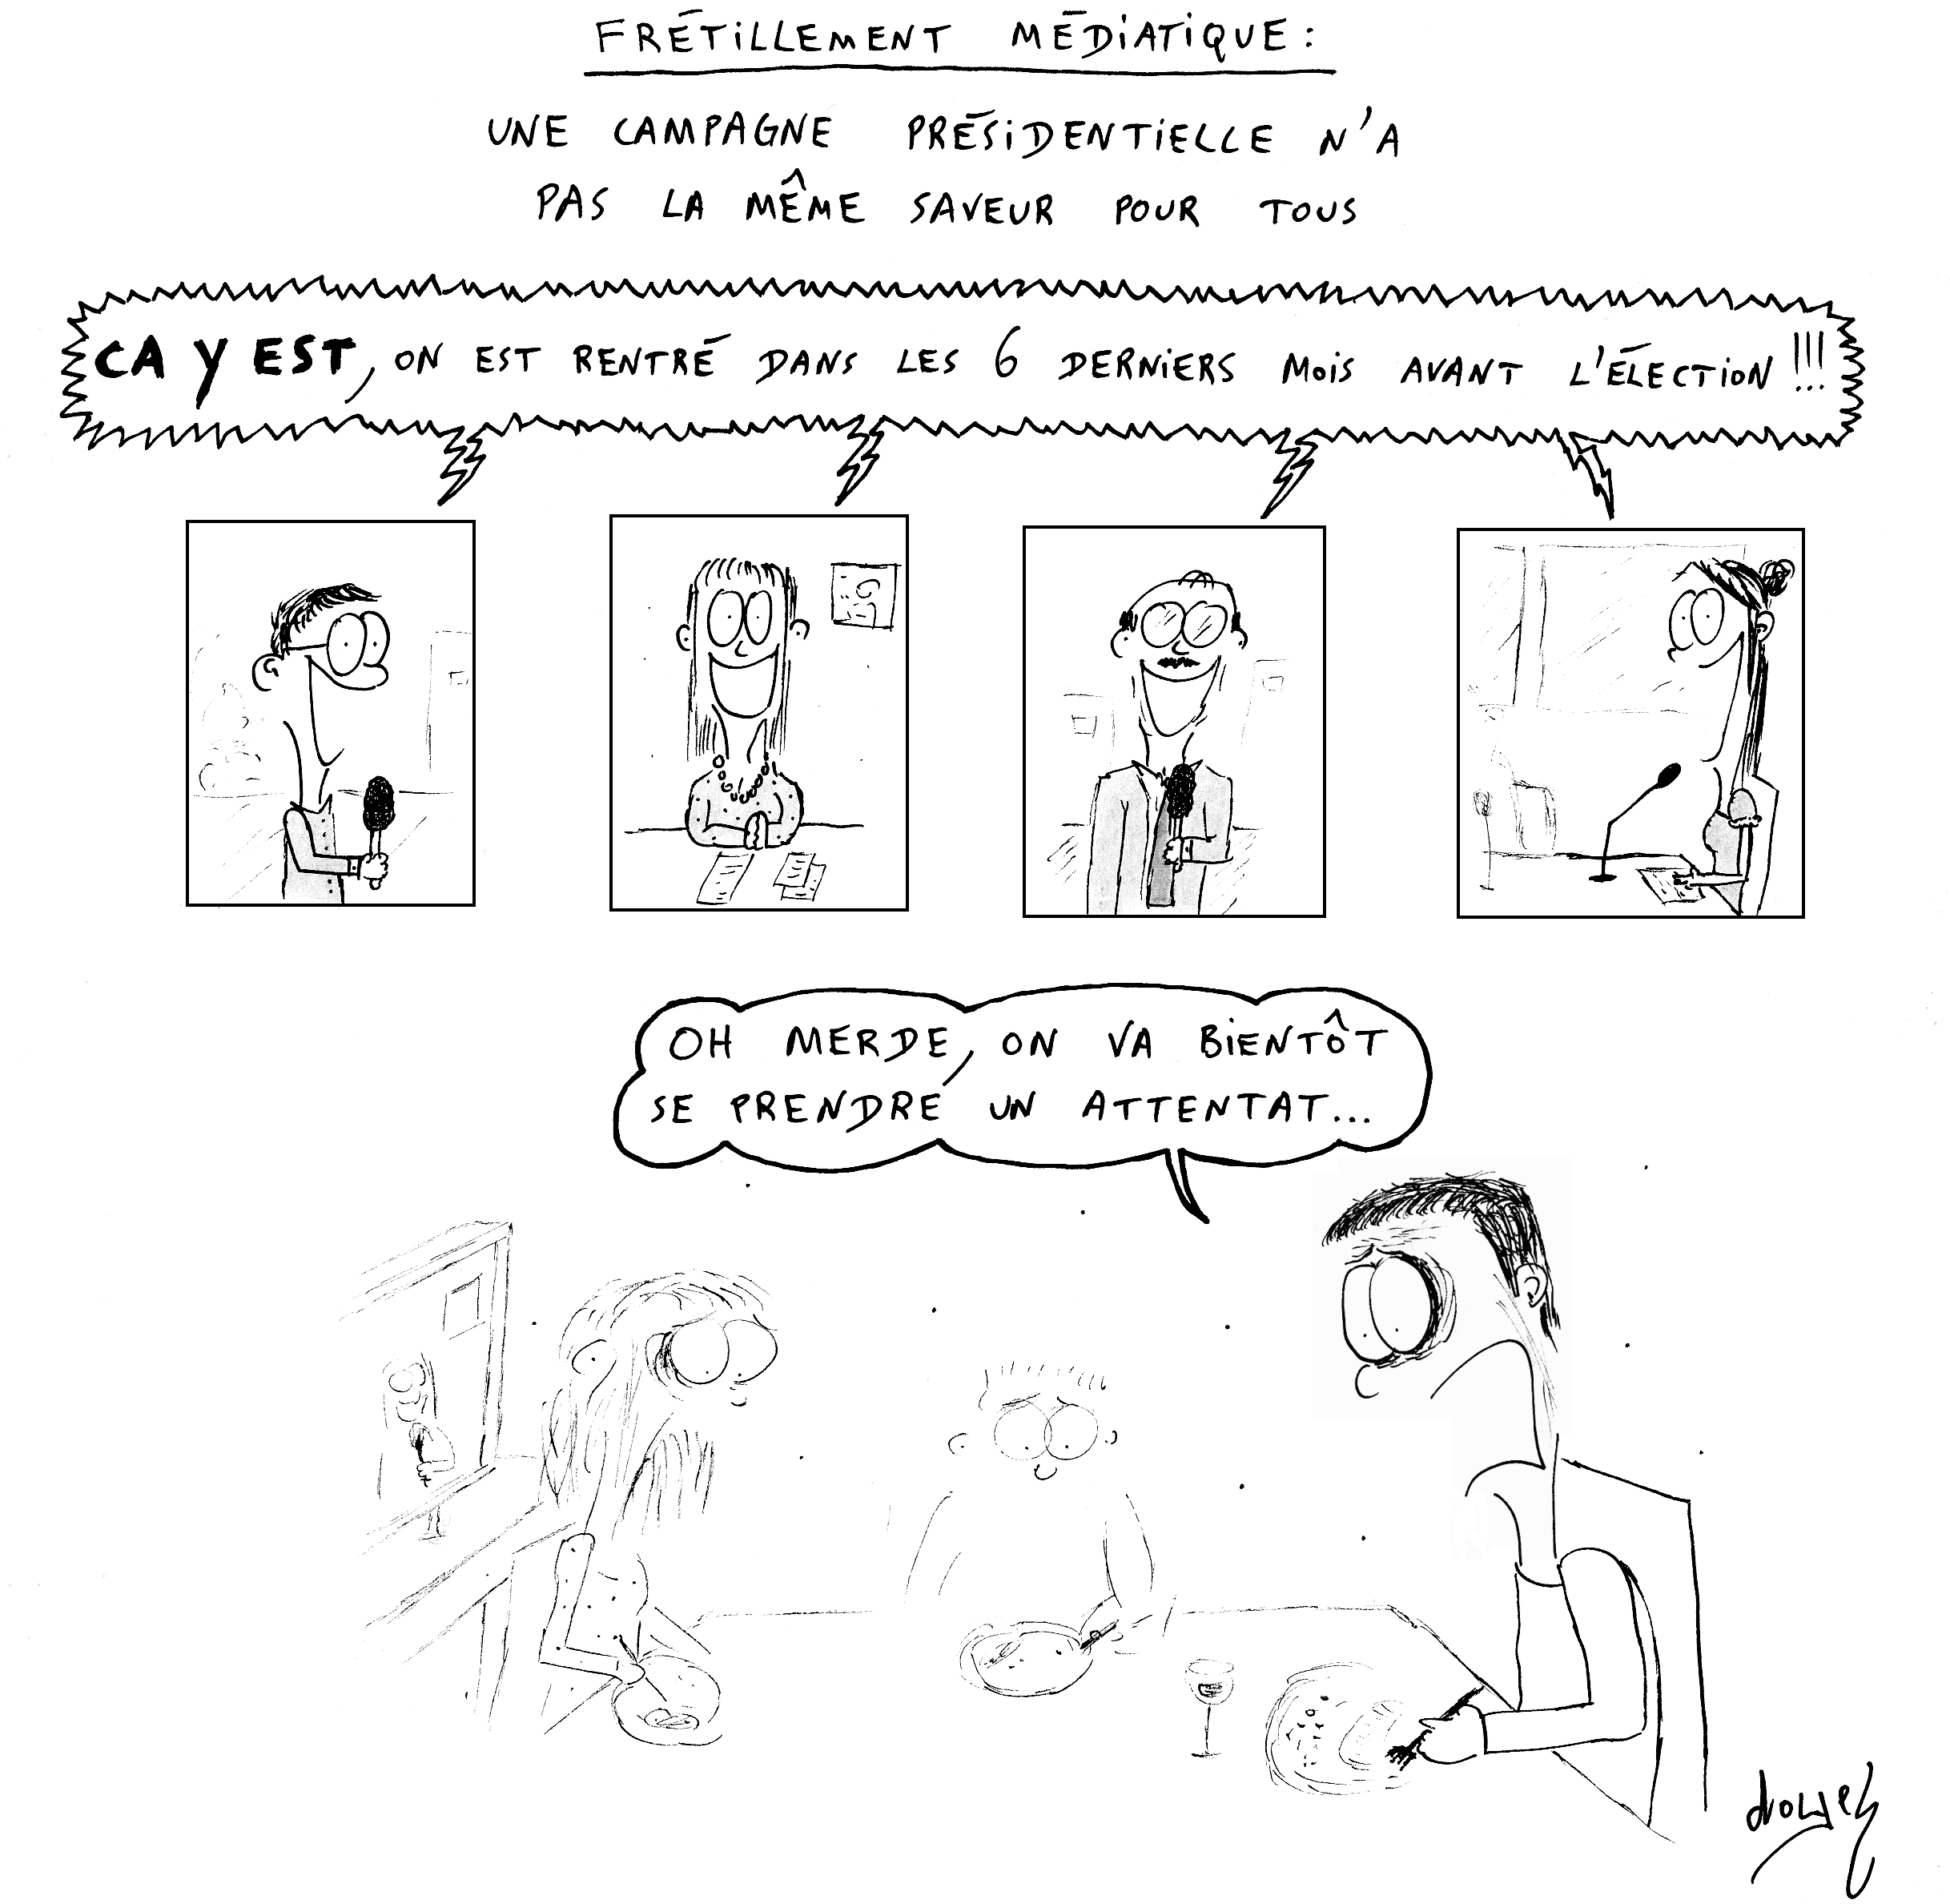 FRÉTiLLEMENT MÉDiATiQUE:
UNE CAMPAGNE PRÉSiDENTiELLE N'A
PAS LA MÊME SAVEUR POUR TOUS
CA Y EST, ON EST RENTRÉ DANS LES 6 DERNiERS MOiS AVANT L'ÉLECTiON!!!
OH MERDE, ON VA BiENTÔT
SE PRENDRE UN ATTENTAT...